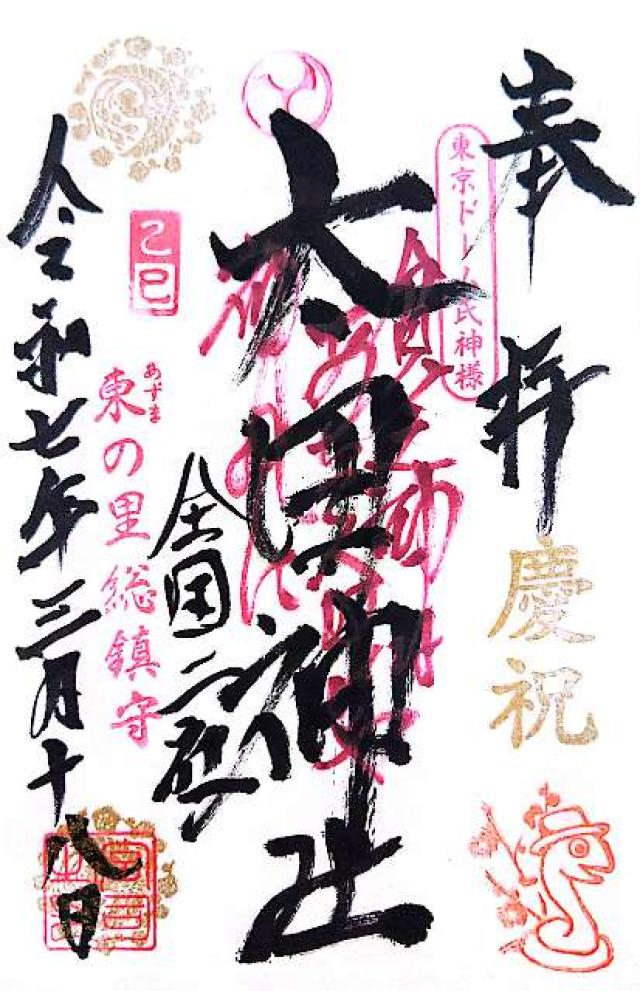 奉拝
慶祝
東京ドーム氏神様
太田神社
全国二社
己巳
東の里総鎮守
あずま
令和七年三月十八日